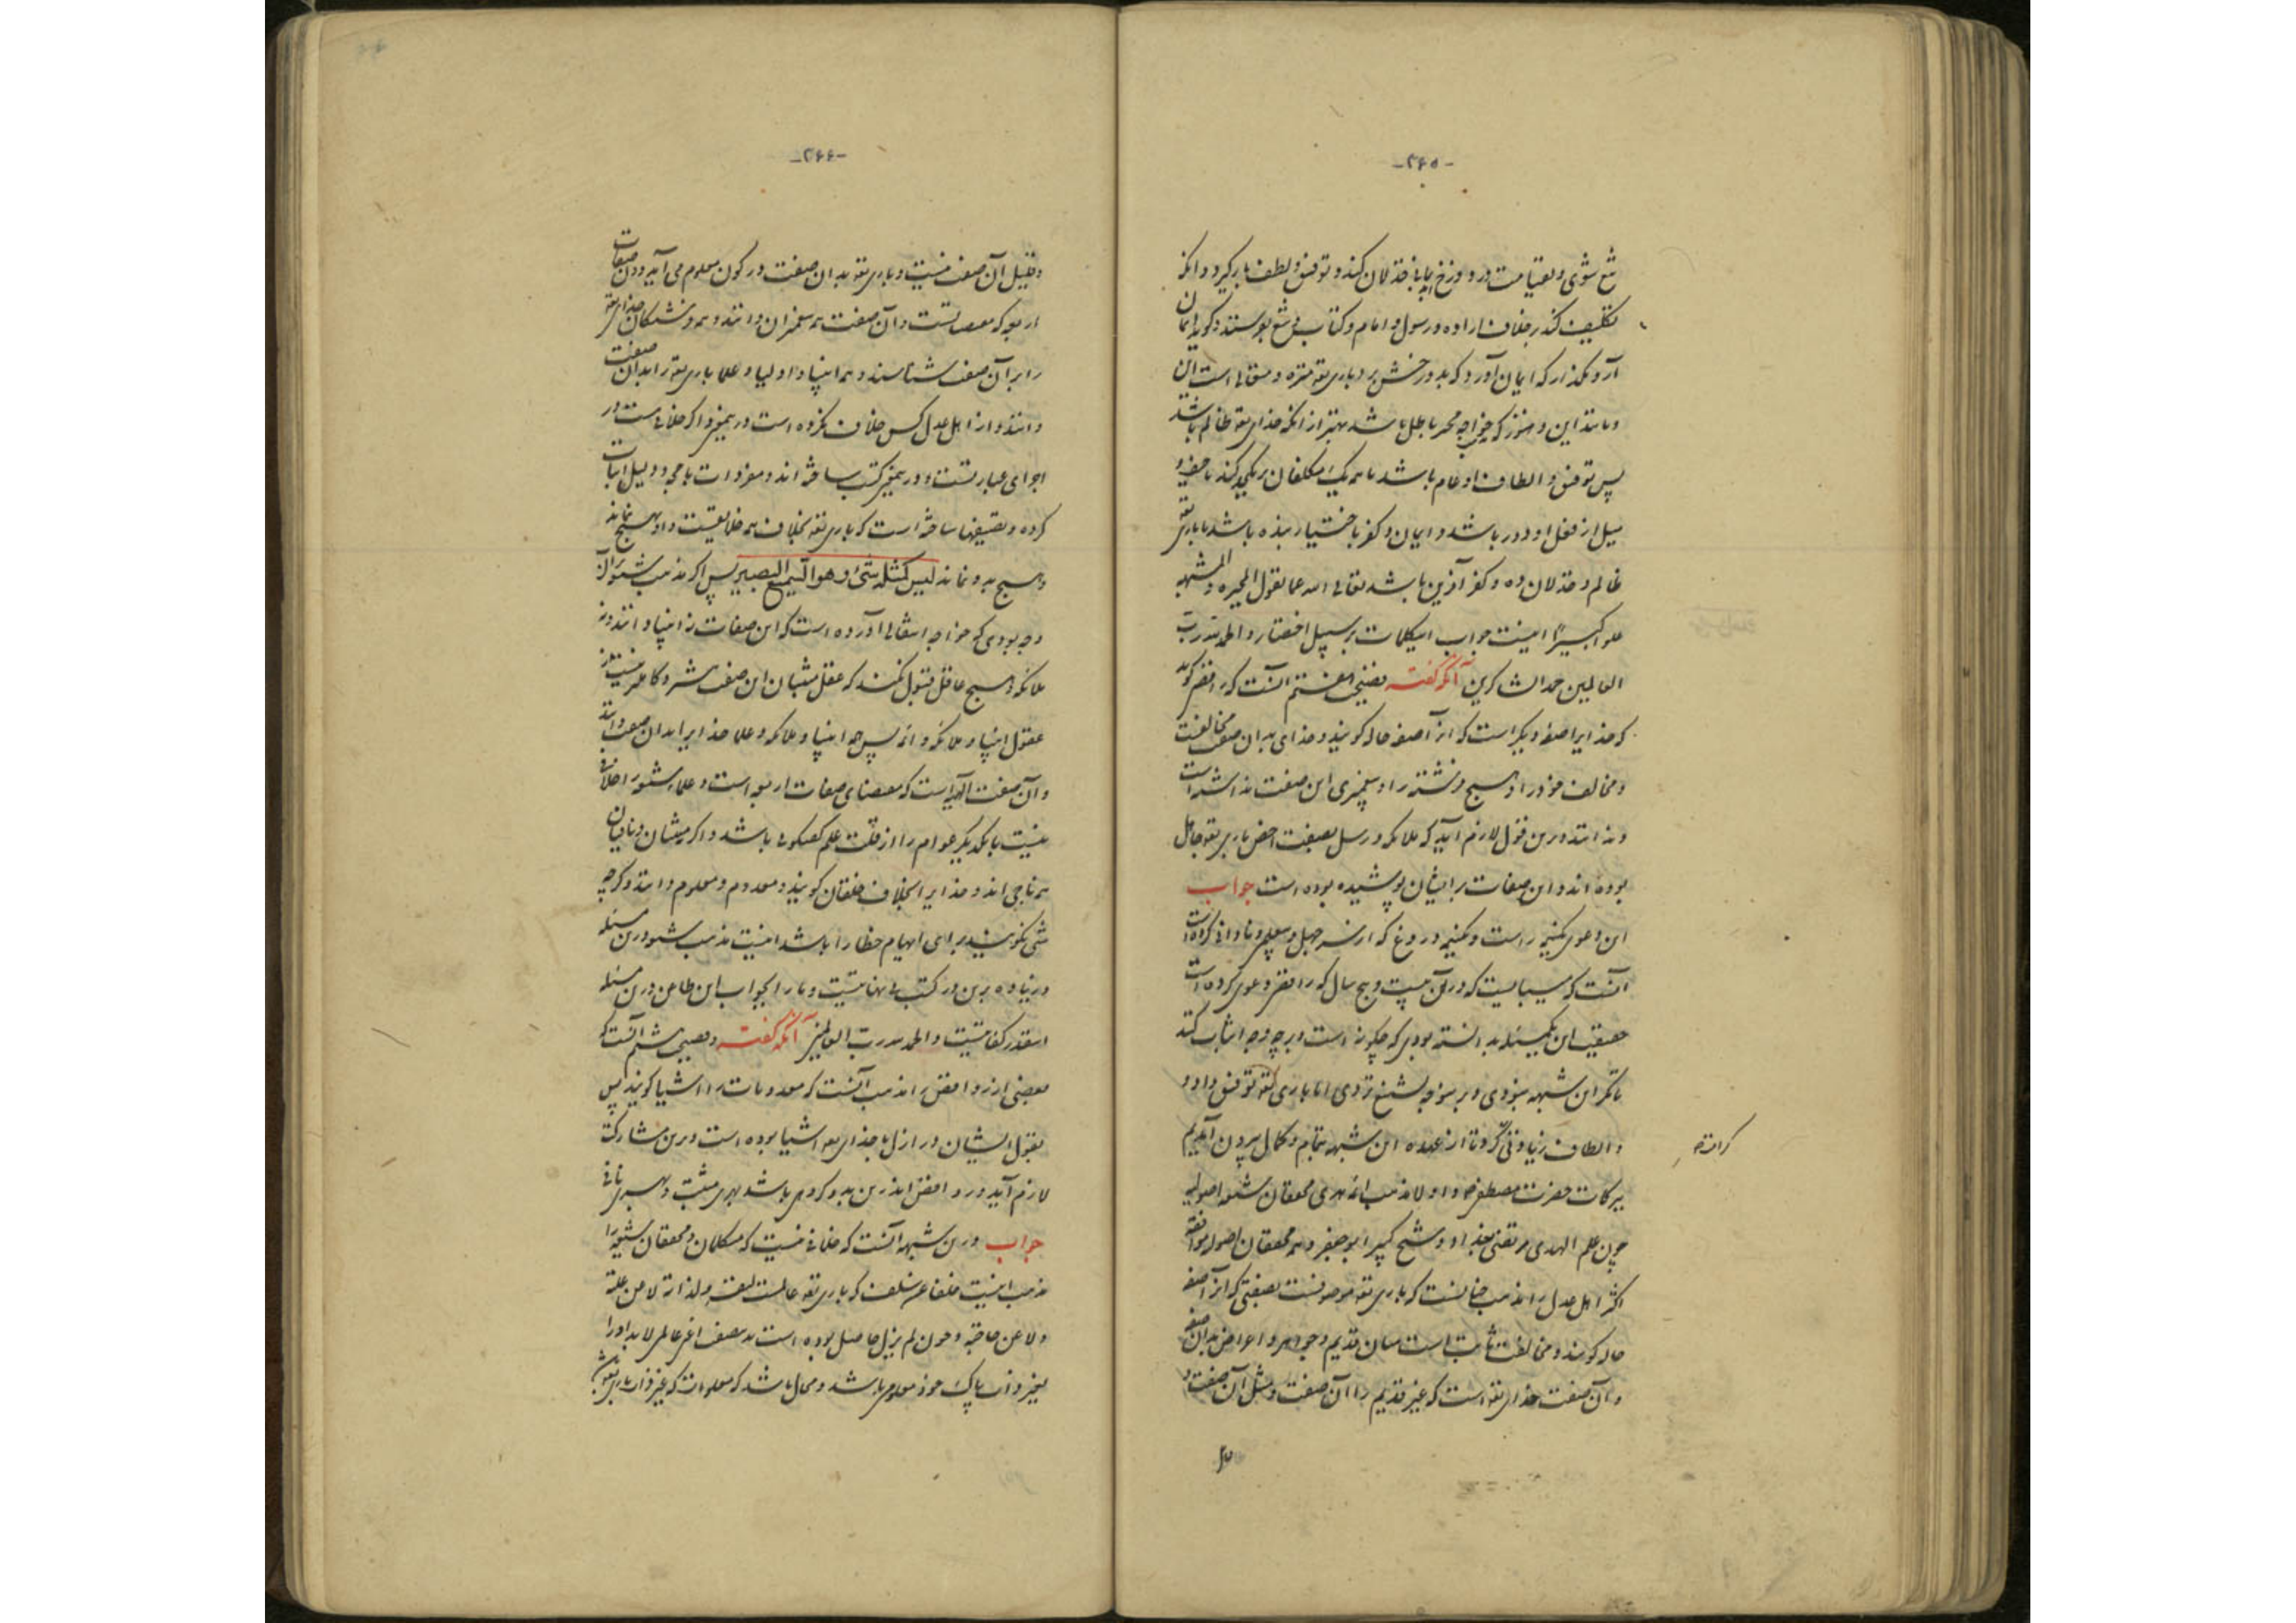 -۲۶۵-
شع شوی و بقیامت در دوزخ
تکلیف کند بخلاف اراده و رسول و امام و کتاب
آرد مگذار که ایمان آورد که بدو رخش برد باری تعه منزه و متعالی است این
و مانند این و هنوز که خواجه مجبر باطل باشد بهتر از آنکه خدای تعه ظالم باشد
پس توفیق و الطاف او عام باشد با همه یک مکلفان بر یکحد کند تا حیف و
میل از فعل او دور باشد و ایمان و کفر باختیار بنده باشد تا باری تعه
ظالم و خذلان ده و کفر آفرین نباشد تعالی الله عما یقول المجبره و المشبهه
علوا کبیرًا اینست جواب اینکلمات بر سبیل اختصار و الحمدلله رب
العالمین حمد الشاکرین آنگه گفته فضیحت هفتم آنست که رافضی گوید
که خدایرا صفه دیگر است که از آن صفه حاله گویند و خدای بدان صفت مخالفست
و مخالف خود را و هیچ فرشته را و پیغمبری این صفت ندانسته است
و ندانند درین قول لازم آید که ملائکه و رسل بصفت اخص باری تعه جاهل
بوده اند و این صفات بر ایشان پوشیده بوده است جواب
این دعوی نیمی راست و نیمی دروغ که از سر جهل و نادانی کرده است
آنست که میبایست که در آن بیست و پنج سال که رافضی دعوی کرده است
حقیقت این یکمسئله بدانسته بودی که چگونه است و بر چه وجه اثبات کنند
تا مگر این شبهه نبودی و برینوجه تشنیع نزدی اما باری تعه توفیق داد و
و الطاف زیادتی کرد تا از عهده این شبهه بتمام و کمال بیرون آمدیم
ببرکات حضرت مصطفی و اولا مذهب ائمه هدی محققان شیعه اصولیه
چون علم الهدی مرتضی ببغداد و شیخ کبیر ابو جعفر و همه محققان اصولی موافقه
اکثر اهل عدل را مذهب چنانست که باری تعه موصوفست بصفتی که از آن صفه
حاله گویند و مخالفت ثابت است میان قدیم و جواهر و اعراض بدان صفه
و آن صفت خدای تعه است که غیر قدیم را آن صفت و مثل آن صفت و
-۲۶۶-
و قبیل آن صفت نیست و باری تعه بدان صفت در کون معلوم می آید و درین صفات
اربعه که مقتضاست و آن صفت همه پیغمبران دانند و همه فرشتگان خدای تعه
را بر آن صفت شناسند و همه انبیا و اولیا و علما باری تعه را بدان صفت
دانند و از اهل عدل کس خلاف نکرده است درین معنی و اگر خلافست در
اجرای عبارتست و درین معنی کتب ساخته اند و مفرداتست با حجه و دلیل اثبات
کرده و تصنیفها ساخته است که باری تعه بخلاف همه خلایقست و او بهیچ نماند
و هیچ بدو نماند لیس کمثله شئ و هو السمیع البصیر پس اگر مذهب شیعه بر آن
وجه بودی که خواجه انتقالی آورده است که این صفات نه انبیا دانند و نه
ملائکه و هیچ عاقل قبول نکند که عقل مثبتان این صفت بیشتر و کاملتر نیست از
عقول انبیا و ملائکه و ائمه پس همه انبیا و ملائکه و علما خدایرا بدان صفت دانند
و آن صفت الهیت است که مقتضای صفات اربعه است و علماء شیعه را خلافی
نیست با یکدیگر عوام را از قلت علم گفتگوئی باشد و اگر مثبتان و نافیان
همه ناجی اند و خدایرا بخلاف خلقان گویند و معدوم و معلوم دانند و گرچه
شئ نگویند برای ایهام خطا را باشد اینست مذهب شیعه درین مسئله
و زیاده برین در کتب بی نهایتست و ما را بجواب این طاعن درین مسئله
اینقدر کفایتست و الحمد لله رب العالمین آنگه گفته و فضیحت هشتم آنست که
بعضی از روافض را مذهب آنست که معدومات را اشیا گویند پس
بقول ایشان در ازل با خدای تعه اشیا بوده است و درین مشارکت
لازم آید و روافض اندرین بدو گروهی باشند بهری مثبت و بهری نافی
جواب درین شبهه آنست که خلافی نیست که متکلمان و محققان شیعه را
مذهب اینست خلفا عن سلف که باری تعه عالمست لنفسه و لذاته لا عن علة
و لا عن حاجة و چون لم یزل حاصل بوده است بر صفت اعنی عالمی لابد او را
بغیر ذات پاک خود معلومی باشد و محال باشد که معلومات که غیر ذات باری تعه